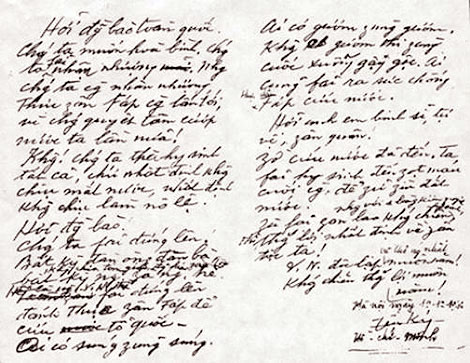 Hỡi đg bào toàn quốc.
Chg ta muốn hoà bình, chg
ta fải nhân nhượng. Nhg
chg ta cg nhân nhượng
Thực zân Fáp cg lấn tới,
vì chg quyết tâm cướp
nước ta lần nữa!
Khg! Chg ta thà hy sinh
tất cả, chứ nhất định khg
chịu mất nước, nhất định
khg chịu làm nô lệ.
Hỡi đg bào!
Chg ta fải đứng lên!
Bất kỳ đàn ông đàn bà
fải đứng lên
đánh Thực zân Fáp để
cứu tổ quốc –
Ai có súng zùng súng.
Ai có gươm zùng gươm,
Khg có gươm thì zùng
cuốc xuổng gậy gộc. Ai
cũng fải ra sức chống
Fáp cứu nước.
Hỡi anh em binh sĩ, tự
vệ, zân quân!
Zờ cứu nước đã đến, ta
fải hy sinh đến zọt máu
cuối cg, để zữ zìn đất
nước.
zù fải zan lao kháng chiến,
thắng lợi nhất định về zân
tộc ta!
V.N. độc lập và thống nhất
muôn năm!
Kháng chiến thắng lợi muôn
năm!
Hà nội ngày 19-12-1946
Hồ-chí-Minh